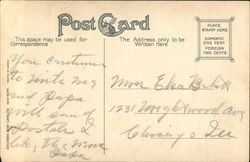 Post Card
This space may be used for
Correspondence
The Address only to be
Written Here
PLACE
STAMP HERE
DOMESTIC
ONE CENT
FOREIGN
TWO CENTS
You continue
to write me
and Papa
will send
Postals
Papa
1231 Wrightwood Ave
Chicago Ill